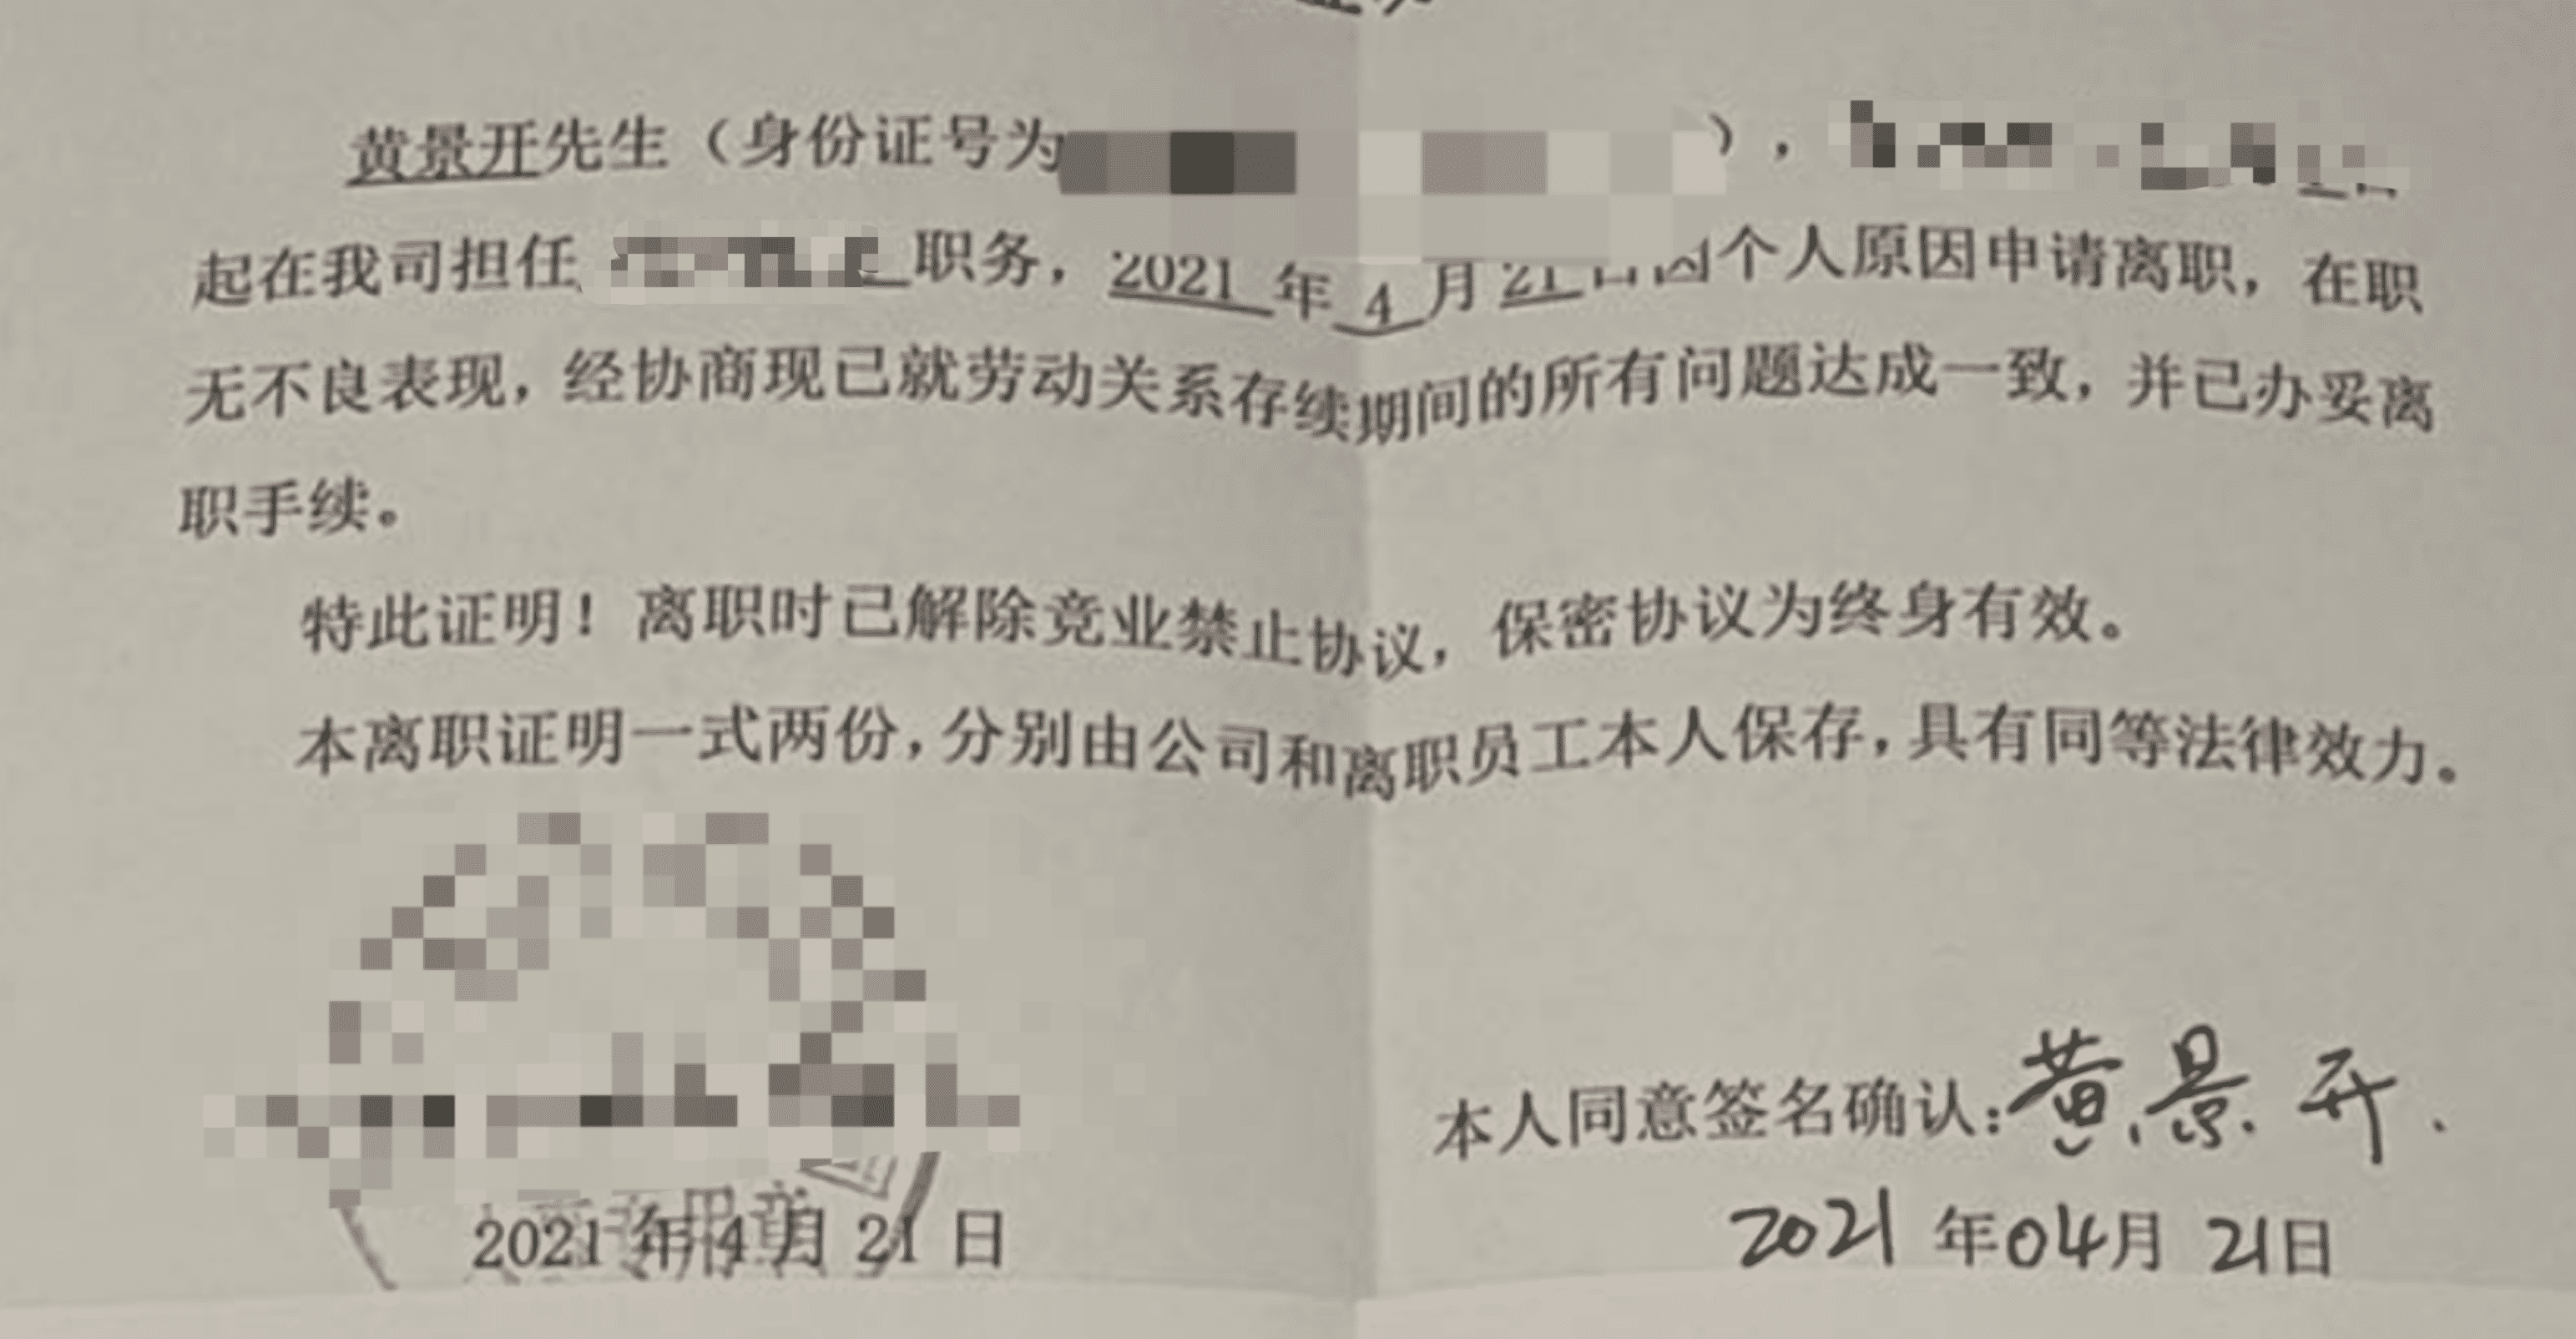 黄景开先生（身份证号为），
起在我司担任职务，2021年4月21日因个人原因申请离职，在职
无不良表现，经协商现已就劳动关系存续期间的所有问题达成一致，并已办妥离
职手续。
特此证明！离职时已解除竞业禁止协议，保密协议为终身有效。
本离职证明一式两份，分别由公司和离职员工本人保存，具有同等法律效力。
本人同意签名确认：黄景开.
2021年4月21日
2021年04月21日